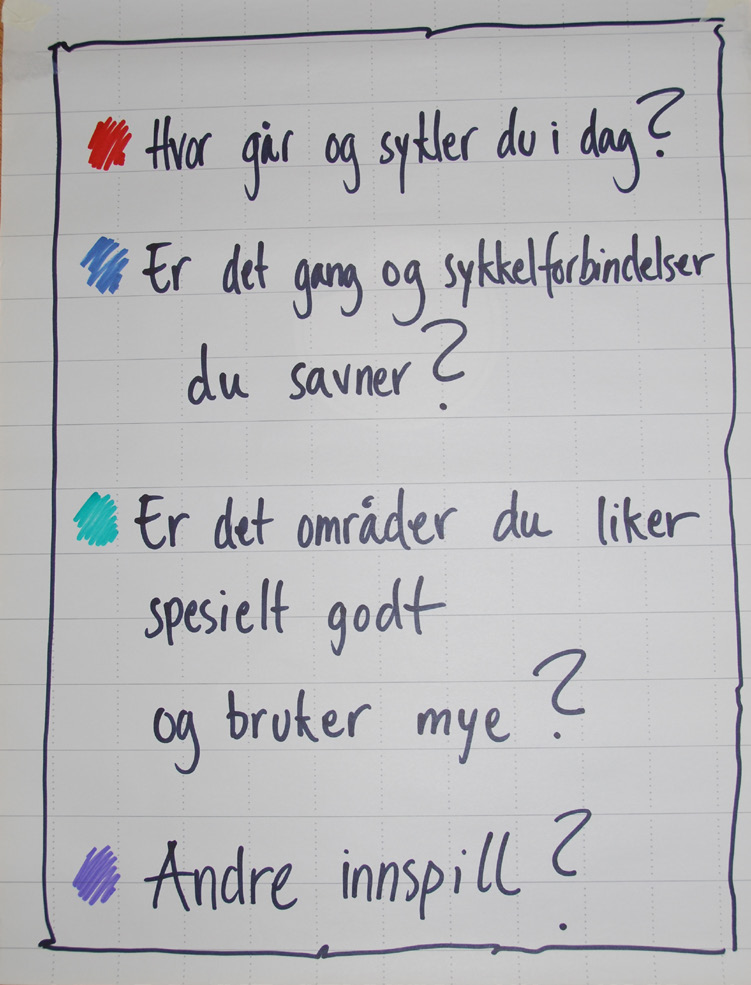 Hvor går og sykler du i dag?
Er det gang og sykkelforbindelser
du savner?
Er det områder du liker
spesielt godt
og bruker mye?
Andre innspill?